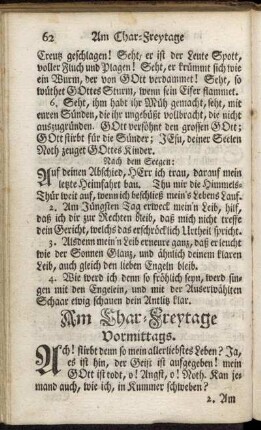 62 Am Char-Freytage
Creutz geschlagen! Seht, er ist der Leute Spott,
voller Fluch und Plagen! Seht, er krümmt sich wie
ein Wurm, der von GOtt verdammet! Seht, so
wüthet GOttes Sturm, wenn sein Eifer flammet.
6. Seht, ihm habt ihr Müh gemacht, seht, mit
euren Sünden, die ihr ungebüßt vollbracht, die nicht
auszugründen. GOtt versöhnt den grossen GOtt;
GOtt stirbt für die Sünder; JEsu, deiner Seelen
Noth zeuget GOttes Kinder.
Nach dem Seegen:
Auf deinen Abschied, HErr ich trau, darauf mein
letzte Heimfahrt bau. Thu mir die Himmels-
Thür weit auf, wenn ich beschließ mein's Lebens Lauf.
2. Am Jüngsten Tag erweck mein'n Leib, hilf,
daß ich dir zur Rechten bleib, daß mich nicht treffe
dein Gericht, welchs das erschröcklich Urtheil spricht.
3. Alsdenn mein'n Leib erneure ganz, daß er leucht
wie der Sonnen Glanz, und ähnlich deinem klaren
Leib, auch gleich den lieben Engeln bleib.
4. Wie werd ich denn so fröhlich seyn, werd sin-
gen mit den Engelein, und mit der Auserwählten
Schaar ewig schauen dein Antlitz klar.
Am Char-Freytage
Vormittags.
Ach! stirbt denn so mein allerliebstes Leben? Ja,
es ist hin, der Geist ist aufgegeben! mein
GOtt ist todt, o! Angst, o! Noth. Kan je-
mand auch, wie ich, in Kummer schweben?
2. Am